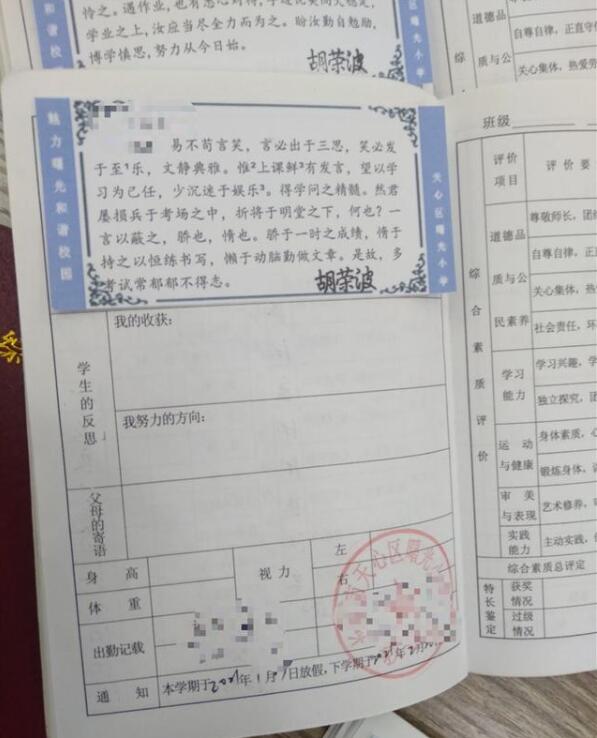 怜之。遇作业，也有悉心对待，字迹优美而又稳定，
学业之上，汝应当尽全力而为之。盼汝勤自勉励，
博学慎思，努力从今日始。
胡荣波
魅力曙光和谐校园
易不苟言笑，言必出于三思，笑必发
于至¹乐，文静典雅。惟²上课鲜³有发言，望以学
习为己任，少沉迷于娱乐³。得学问之精髓。然君
屡损兵于考场之中，折将于明堂之下，何也？一
言以蔽之，骄也，惰也。骄于一时之成绩，惰于
持之以恒练书写，懒于动脑勤做文章。是故，多
考试常郁郁不得志。
胡荣波
天心区曙光小学
学生的反思
我的收获：
我努力的方向：
父母的寄语
身高
视力
左
右
体重
出勤记载
天心区曙光小
通知
本学期于2021年1月31日放假，下学期于2021年2月
道德品
质与公
综
自尊自律，正直守
关心集体，热爱劳
班级
评价项目
评价要
综合素质评价
道德品质与公民素养
尊敬师长，团结
自尊自律，正
关心集体，热
社会责任，环
学习能力
学习兴趣，学
独立探究，团
运动与健康
身体素质，心
锻炼身体，讲
审美与表现
艺术修养，可
实践能力
主动实践，创
综合素质总评定
特长鉴定
获奖情况
过级情况